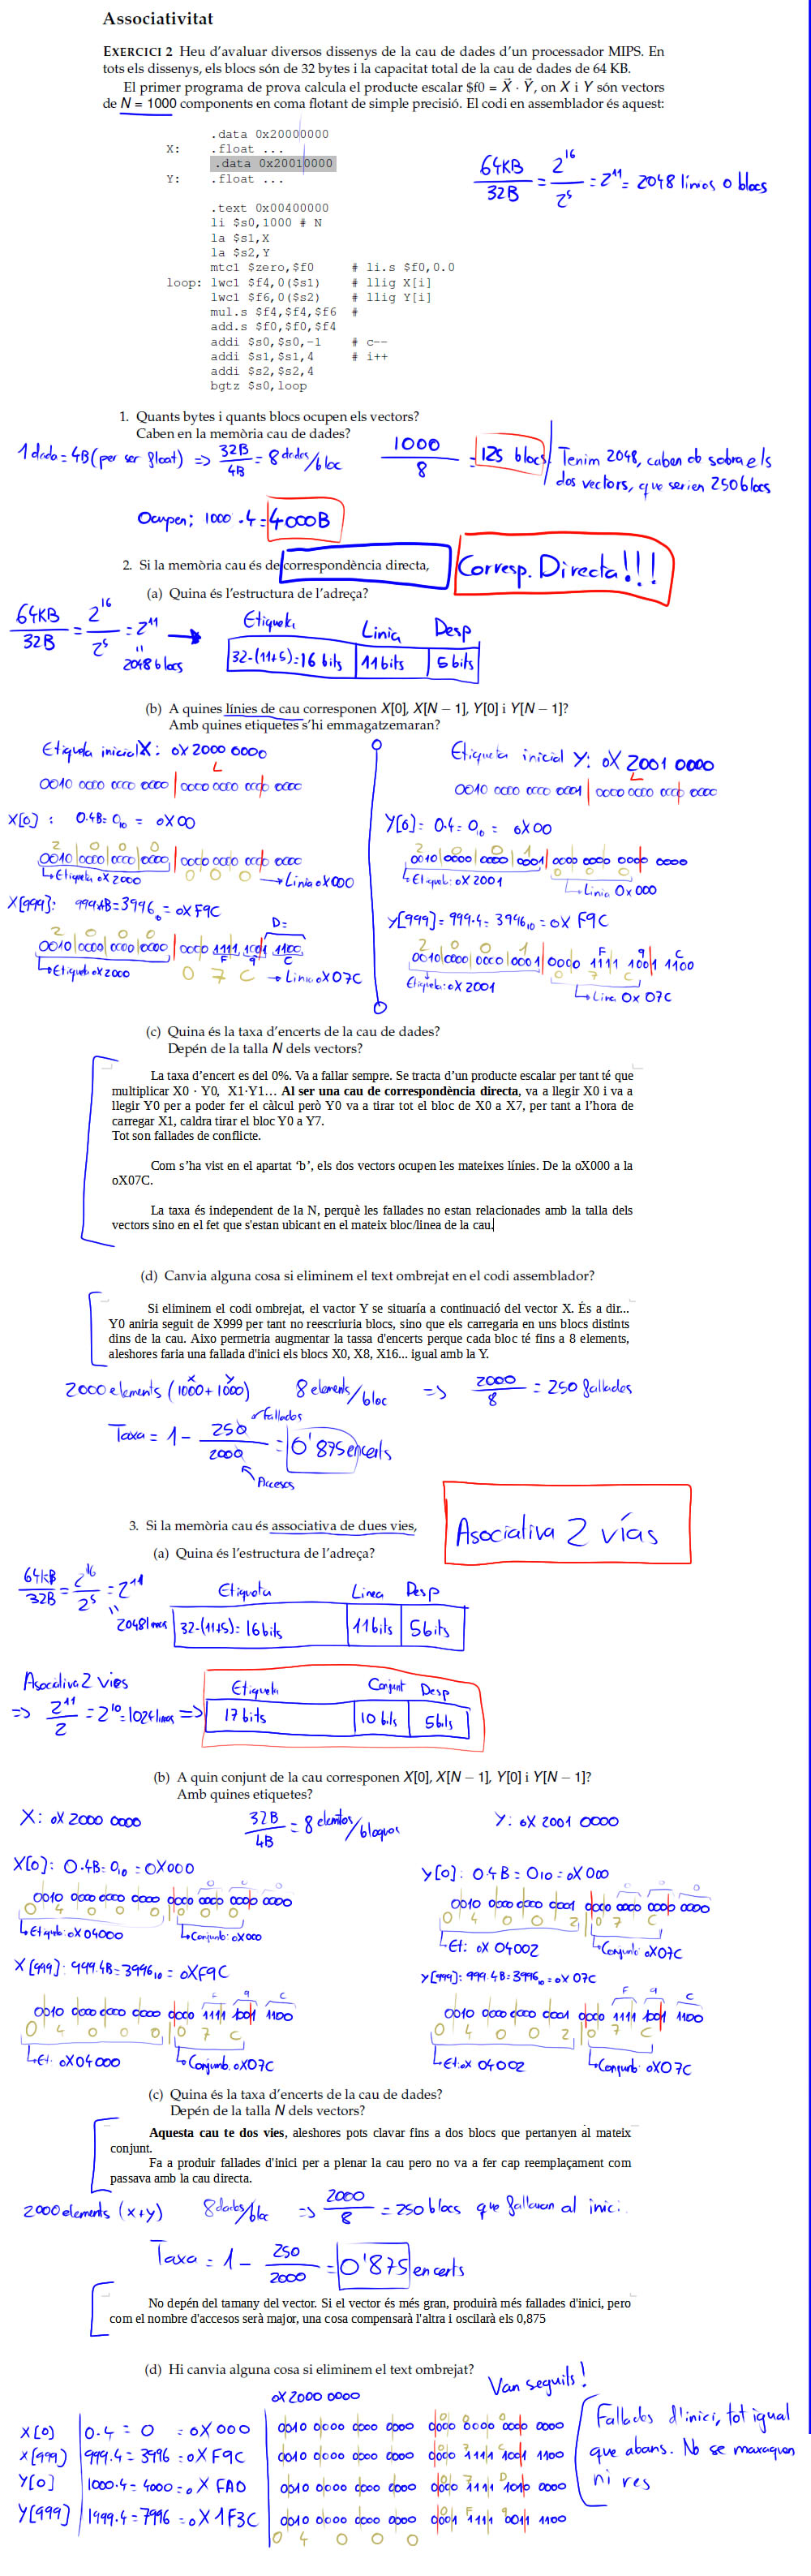 Associativitat
EXERCICI 2 Heu d'avaluar diversos dissenys de la cau de dades d'un processador MIPS. En
tots els dissenys, els blocs són de 32 bytes i la capacitat total de la cau de dades de 64 KB.
El primer programa de prova calcula el producte escalar $f0 = X⃗ · Y⃗, on X i Y són vectors
de N = 1000 components en coma flotant de simple precisió. El codi en assemblador és aquest:
.data 0x20000000
X: .float ...
.data 0x20010000
Y: .float ...
64KB/32B = 2^16/2^5 = 2^11 = 2048 línies o blocs
.text 0x00400000
li $s0,1000 # N
la $s1,X
la $s2,Y
mtc1 $zero,$f0 # li.s $f0,0.0
loop: lwc1 $f4,0($s1) # llig X[i]
lwc1 $f6,0($s2) # llig Y[i]
mul.s $f4,$f4,$f6 #
add.s $f0,$f0,$f4
addi $s0,$s0,-1 # c--
addi $s1,$s1,4 # i++
addi $s2,$s2,4
bgtz $s0,loop
1. Quants bytes i quants blocs ocupen els vectors?
Caben en la memòria cau de dades?
1 dada = 4B (per ser float) => 32B/4B = 8 dades/bloc 1000/8 = 125 blocs Tenim 2048, caben de sobra els
dos vectors, que serien 250 blocs
Ocupen; 1000 . 4 = 4000B
2. Si la memòria cau és de correspondència directa,
Corresp. Directa!!!
(a) Quina és l'estructura de l'adreça?
64KB/32B = 2^16/2^5 = 2^11
2048 blocs
Etiqueta Linia Desp
32-(11+5)=16 bits 11 bits 5 bits
(b) A quines línies de cau corresponen X[0], X[N − 1], Y[0] i Y[N − 1]?
Amb quines etiquetes s'hi emmagatzemaran?
Etiqueta inicial X: 0X 2000 0000
0010 0000 0000 0000 0000 0000 0000 0000
X[0] : 0.4B = 0₁₀ = 0X00
2 0 0 0
0010 0000 0000 0000 0000 0000 0000 0000
Etiqueta 0X2000 0 0 0 Linia 0X000
X[999]: 999.4B = 3996₁₀ = 0XF9C
D=
2 0 0 0
0010 0000 0000 0000 0000 1111 1001 1100
F 9 C
Etiqueta 0X2000 0 7 C Linia 0X07C
Etiqueta inicial Y: 0X 2001 0000
0010 0000 0000 0001 0000 0000 0000 0000
Y[0] = 0.4 = 0₁₀ = 0X00
2 0 0 1
0010 0000 0000 0001 0000 0000 0000 0000
Etiqueta: 0X 2001 0 0 0
Linia 0x000
Y[999] = 999.4 = 3996₁₀ = 0X F9C
2 0 0 1 F 9 C
0010 0000 0000 0001 0000 1111 1001 1100
Etiqueta: 0X 2001 0 7 C
Linia 0x 07C
(c) Quina és la taxa d'encerts de la cau de dades?
Depén de la talla N dels vectors?
La taxa d'encert es del 0%. Va a fallar sempre. Se tracta d'un producte escalar per tant té que
multiplicar X0 · Y0, X1·Y1… Al ser una cau de correspondència directa, va a llegir X0 i va a
llegir Y0 per a poder fer el càlcul però Y0 va a tirar tot el bloc de X0 a X7, per tant a l'hora de
carregar X1, caldra tirar el bloc Y0 a Y7.
Tot son fallades de conflicte.
Com s'ha vist en el apartat 'b', els dos vectors ocupen les mateixes línies. De la oX000 a la
oX07C.
La taxa és independent de la N, perquè les fallades no estan relacionades amb la talla dels
vectors sino en el fet que s'estan ubicant en el mateix bloc/linea de la cau.
(d) Canvia alguna cosa si eliminem el text ombrejat en el codi assemblador?
Si eliminem el codi ombrejat, el vactor Y se situaría a continuació del vector X. És a dir...
Y0 aniria seguit de X999 per tant no reescriuria blocs, sino que els carregaria en uns blocs distints
dins de la cau. Aixo permetria augmentar la tassa d'encerts perque cada bloc té fins a 8 elements,
aleshores faria una fallada d'inici els blocs X0, X8, X16... igual amb la Y.
X Y
2000 elements (1000+1000) 8 elements/bloc => 2000/8 = 250 fallades
Fallades
Taxa = 1 - 250/2000 = 0'875 encerts
Accesos
3. Si la memòria cau és associativa de dues vies,
Asociativa 2 vías
(a) Quina és l'estructura de l'adreça?
64KB/32B = 2^16/2^5 = 2^11
2048 linies
Etiqueta Linea Desp
32-(11+5)= 16 bits 11 bits 5 bits
Asociativa 2 vies
=> 2^11/2 = 2^10 = 1024 linies =>
Etiqueta Conjunt Desp
17 bits 10 bits 5 bits
(b) A quin conjunt de la cau corresponen X[0], X[N − 1], Y[0] i Y[N − 1]?
Amb quines etiquetes?
X: 0X 2000 0000 32B/4B = 8 elemtos/bloque Y: 0X 2001 0000
X[0]: 0.4B = 0₁₀ = 0X000
0 0 0
0010 0000 0000 0000 0000 0000 0000 0000
0 4 0 0 0 0 0 0
Etiqueta: 0X04000 Conjunto: 0X000
X[999]: 999.4B = 3996₁₀ = 0XF9C
F 9 C
0010 0000 0000 0000 0000 1111 1001 1100
0 4 0 0 0 0 7 C
Et: 0X04000 Conjunt: 0X07C
Y[0]: 0.4B = 0₁₀ = 0X000
0 0 0
0010 0000 0000 0001 0000 0000 0000 0000
0 4 0 0 2 0 7 C
Et: 0X 04002 Conjunto: 0X07C
Y[999]: 999.4B = 3996₁₀ = 0X 07C
F 9 C
0010 0000 0000 0001 0000 1111 1001 1100
0 4 0 0 2 0 7 C
Et: 0X 04002 Conjunt: 0X07C
(c) Quina és la taxa d'encerts de la cau de dades?
Depén de la talla N dels vectors?
Aquesta cau te dos vies, aleshores pots clavar fins a dos blocs que pertanyen al mateix
conjunt.
Fa a produir fallades d'inici per a plenar la cau pero no va a fer cap reemplaçament com
passava amb la cau directa.
2000 elements (x+y) 8 dades/bloc => 2000/8 = 250 blocs que fallaran al inici.
Taxa = 1 - 250/2000 = 0'875 encerts
No depén del tamany del vector. Si el vector és més gran, produirà més fallades d'inici, pero
com el nombre d'accesos serà major, una cosa compensarà l'altra i oscilarà els 0,875
(d) Hi canvia alguna cosa si eliminem el text ombrejat?
Van seguits!
0X 2000 0000
X[0] 0.4 = 0 = 0X 000 0010 0000 0000 0000 0000 0000 0000 0000
X[999] 999.4 = 3996 = 0X F9C 0010 0000 0000 0000 0000 1111 1001 1100
Y[0] 1000.4 = 4000 = 0X FA0 0010 0000 0000 0000 0000 1111 1010 0000
Y[999] 1999.4 = 7996 = 0X 1F3C 0010 0000 0000 0000 0001 1111 0011 1100
0 4 0 0 0
Fallades d'inici, tot igual
que abans. No se maxaquen
ni res